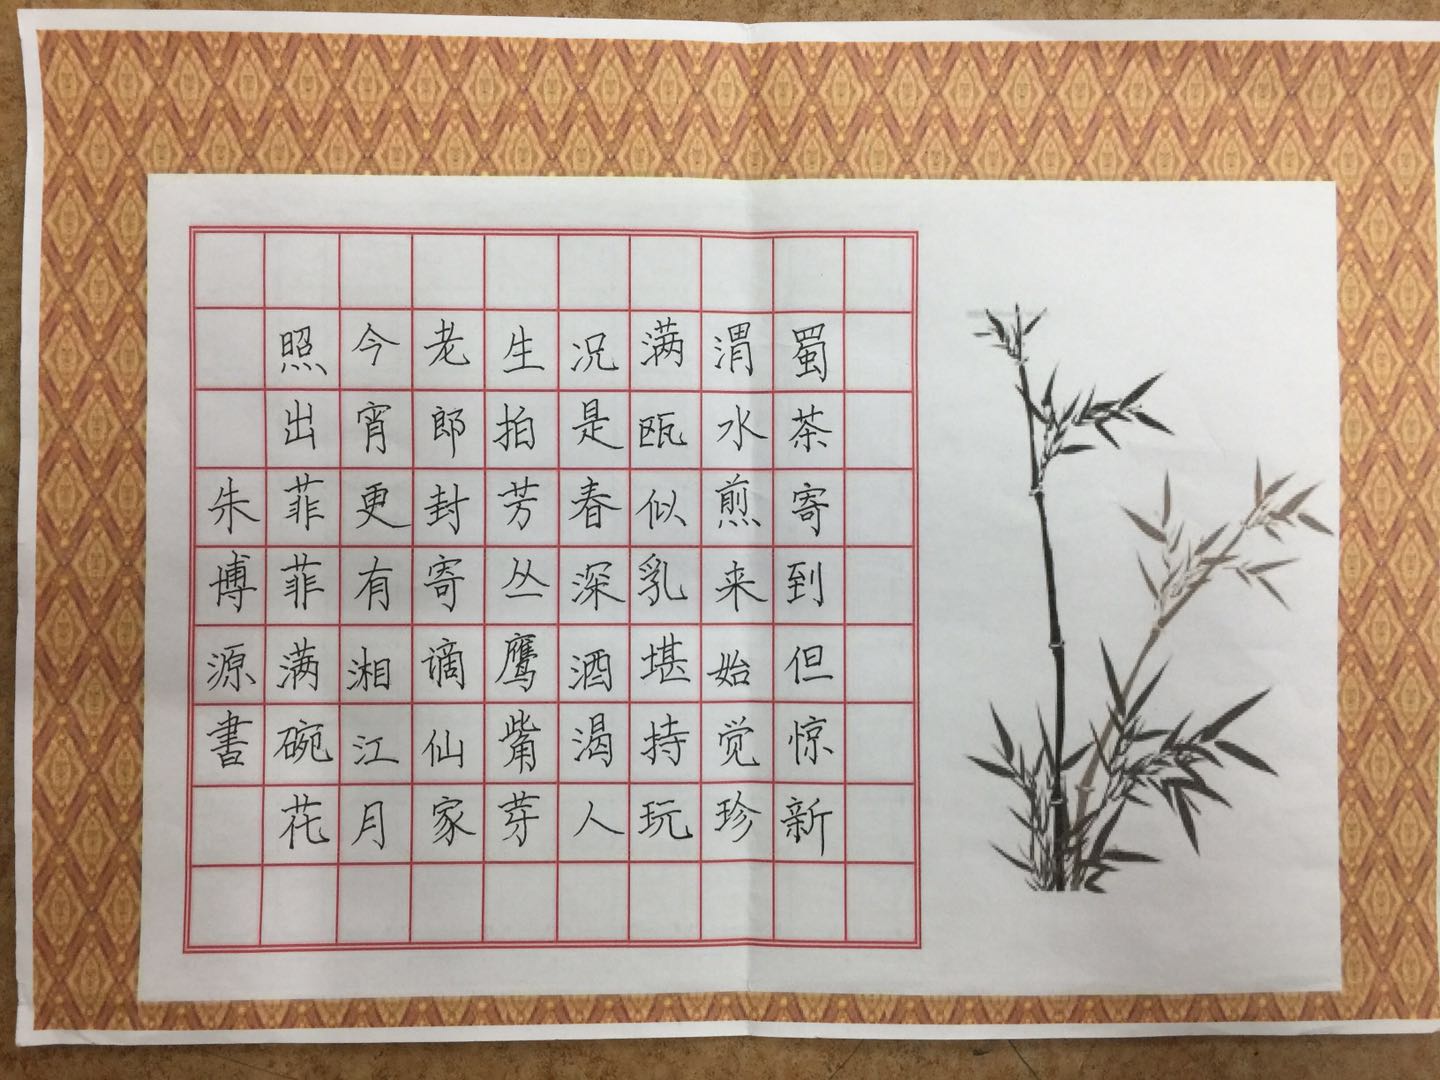 蜀茶寄到但惊新
渭水煎来始觉珍
满瓯似乳堪持玩
况是春深酒渴人
生拍芳丛鹰觜芽
老郎封寄谪仙家
今宵更有湘江月
照出菲菲满碗花
朱博源書